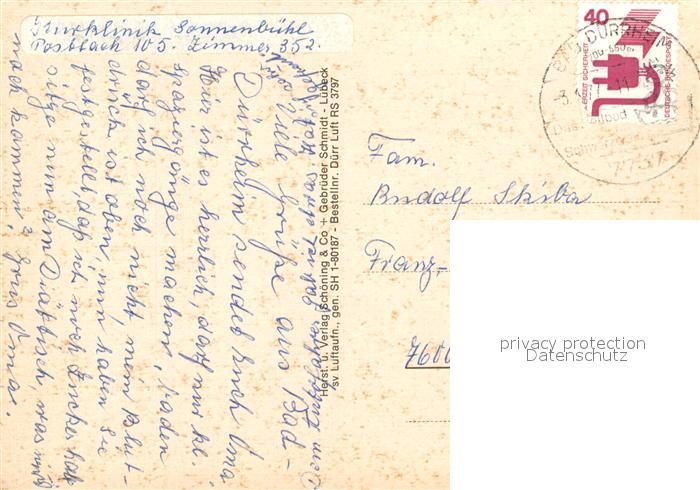 Kurklinik Sonnenbühl
Postfach 105. Zimmer 352.
Viele Grüße aus Bad-
Dürrheim sendet Euch Oma
Hier ist es herrlich, darf nur kl.
spaziergänge machen, baden
darf ich noch nicht, mein Blut-
druck ist oben, nun haben sie
festgestellt, daß ich noch Zucker hab
sitze nun am Diättisch, was wird
noch kommen? Grus Oma.
Herst. u. Verlag Schöning & Co + Gebrüder Schmidt - Lübeck
sv Luftaufn., gen. SH 1-80187 - Bestellnr. Dürr Luft RS 3797
40
JEDERZEIT SICHERHEIT
DEUTSCHE BUNDESPOST
BAD DÜRRHEIM
7737
Fam.
Rudolf Skiba
Franz-
7600
privacy protection
Datenschutz